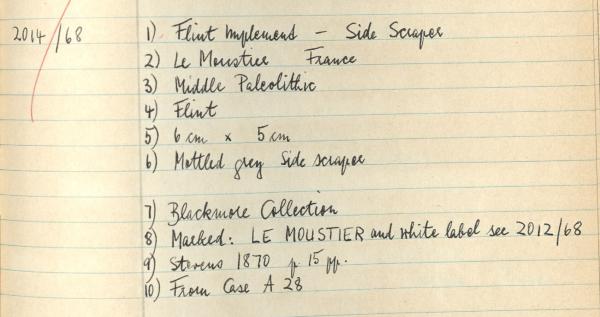 2014/68 1) Flint Implement – Side Scraper
2) Le Moustier France
3) Middle Paleolithic
4) Flint
5) 6 cm x 5 cm
6) Mottled grey Side scraper
7) Blackmore Collection
8) Marked: LE MOUSTIER and white label see 2012/68
9) Stevens 1870 p 15 pp.
10) From Case A 28